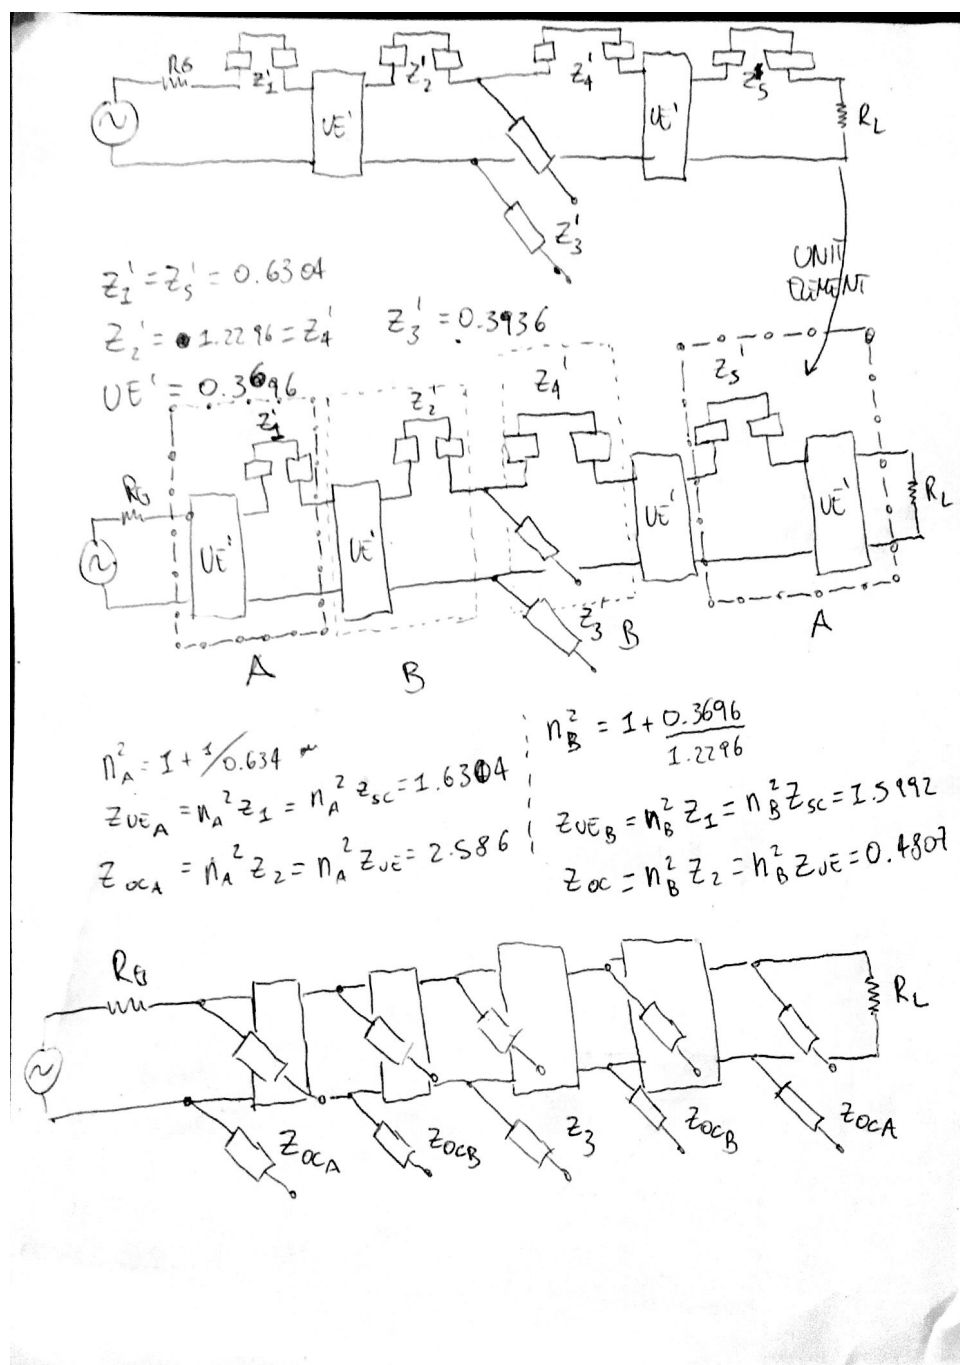 R_G Z_1' Z_2' Z_4' Z_5
UE' UE' R_L
Z_3'
UNIT
ELEMENT
Z_1' = Z_5' = 0.6304
Z_2' = 1.2296 = Z_4' Z_3' = 0.3936
UE' = 0.3696
Z_1' Z_2' Z_4' Z_5'
R_G UE' UE' UE' UE' R_L
Z_3'
A B B A
n_A^2 = 1 + 1/0.634
Z_UE_A = n_A^2 Z_1 = n_A^2 Z_SC = 1.6304
Z_OC_A = n_A^2 Z_2 = n_A^2 Z_UE = 2.586
n_B^2 = 1 + 0.3696/1.2296
Z_UE_B = n_B^2 Z_1 = n_B^2 Z_SC = 1.5992
Z_OC = n_B^2 Z_2 = n_B^2 Z_UE = 0.4807
R_G R_L
Z_OC_A Z_OC_B Z_3 Z_OC_B Z_OC_A